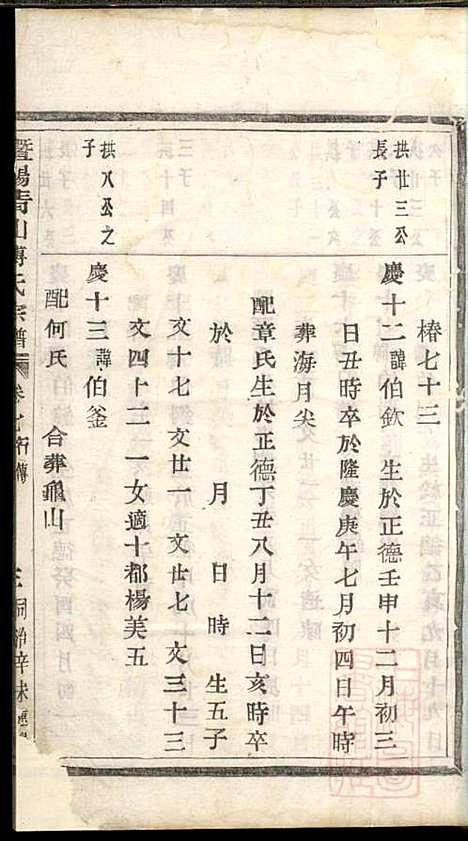 椿七十三
拱廿三公
長子
慶十二諱伯欽 生於正德壬申十二月初三
日丑時卒於隆慶庚午七月初四日午時
葬海月尖
配章氏生於正德丁丑八月十二日亥時卒
於 月 日 時 生五子
文十七 文廿一 文廿七 文三十三
文四十二 一女適十都楊芙五
拱八公之
子
慶十三諱伯釜
配何氏 合葬龜山
暨陽青山傅氏宗譜 卷七 行傳 同治辛未